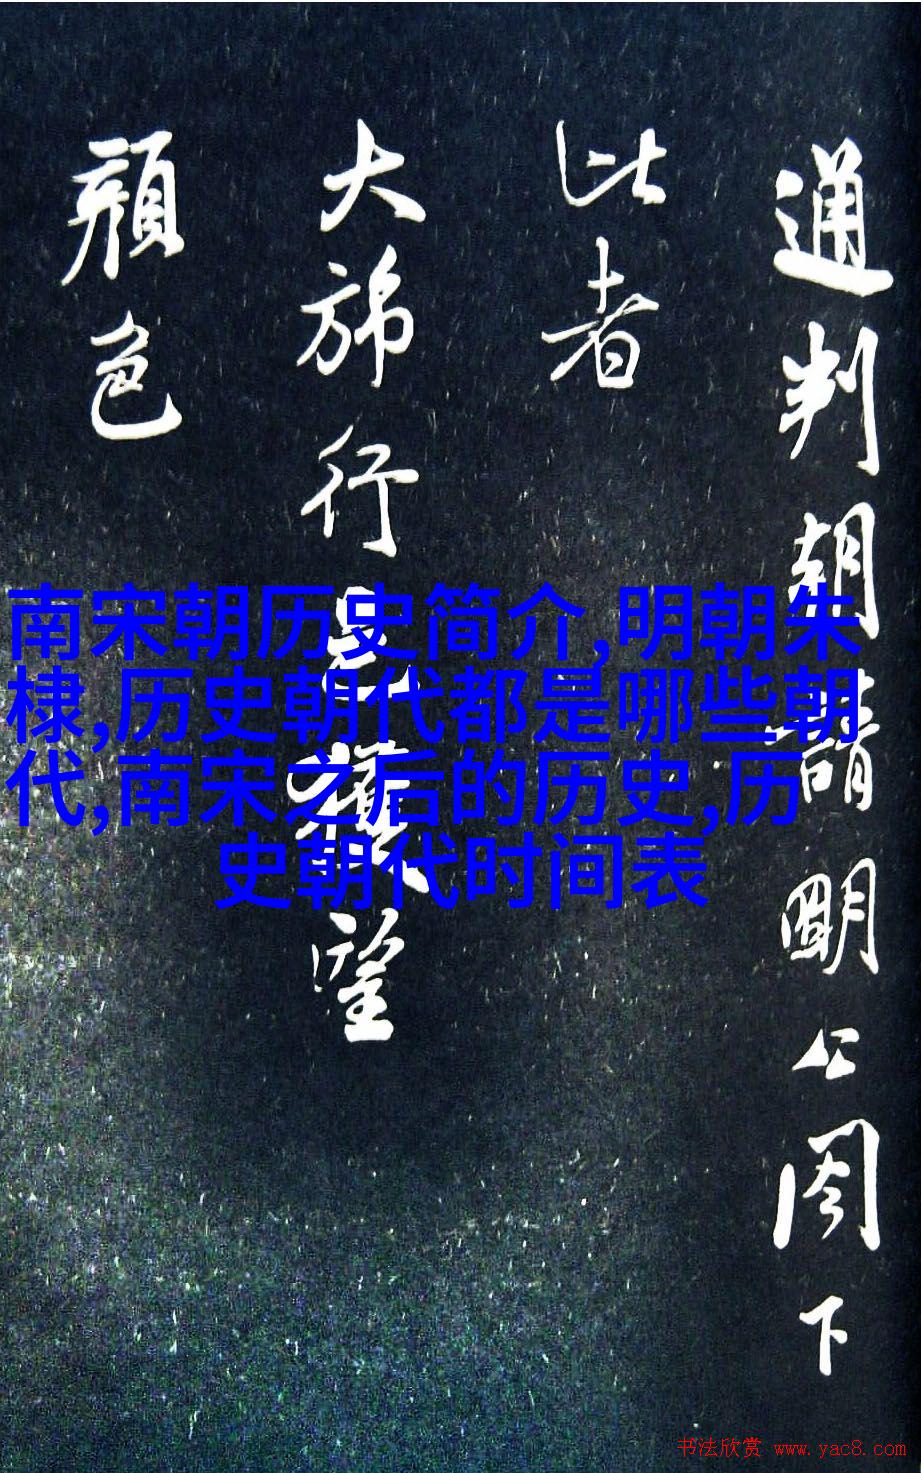 通判朝請明公閣下
此者
大旆行
望
顏色
南宋朝历史简介,明朝朱
棣,历史朝代都是哪些朝
代,南宋之后的历史,历
史朝代时间表
书法欣赏 www.yac8.com